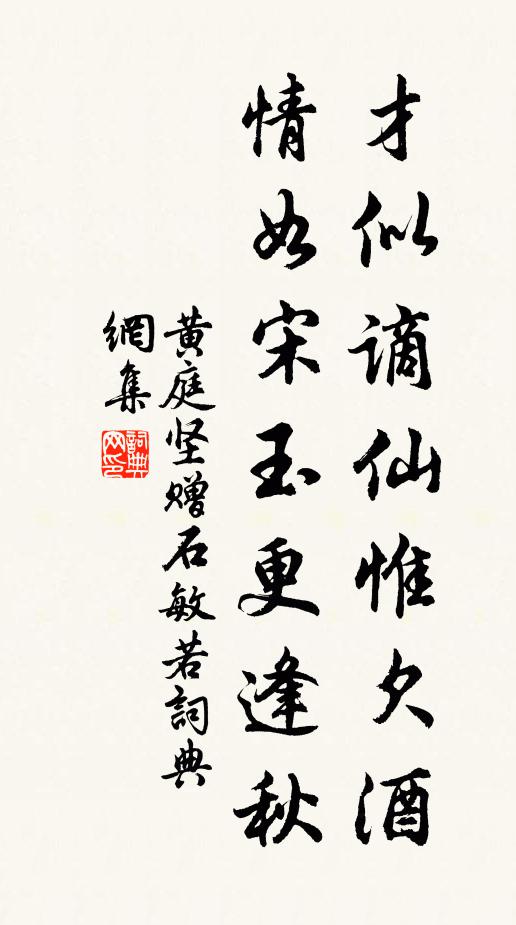 才似谪仙惟欠酒
情如宋玉更逢秋
黄庭坚赠石敏若詞典
網集
詞典
网印